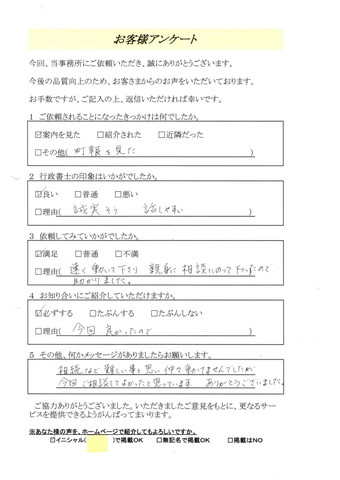 お客様アンケート
今回、当事務所にご依頼いただき、誠にありがとうございます。
今後の品質向上のため、お客さまからのお声をいただいております。
お手数ですが、ご記入の上、返信いただければ幸いです。
1 ご依頼されることになったきっかけは何でしたか。
☑案内を見た □紹介された □近隣だった
□その他( 町報を見た )
2 行政書士の印象はいかがでしたか。
☑良い □普通 □悪い
□理由( 誠実そう 話しやすい )
3 依頼してみていかがでしたか。
☑満足 □普通 □不満
□理由( 速く動いて下さり 親身に相談にのって下さったので
助かりました。 )
4 お知り合いにご紹介していただけますか。
☑必ずする □たぶんする □たぶんしない
□理由( 今回良かったので )
5 その他、何かメッセージがありましたらお願いします。
相続など難しい事と思い 仲々動けませんでしたが
今回ご相談してよかったと思っています。ありがとうございました。
ご協力ありがとうございました。いただきましたご意見をもとに、更なるサー
ビスを提供できるようがんばってまいります。
※あなた様の声を、ホームページで紹介してもよろしいですか。
☑イニシャル( )で掲載OK □無記名で掲載OK □掲載はNO